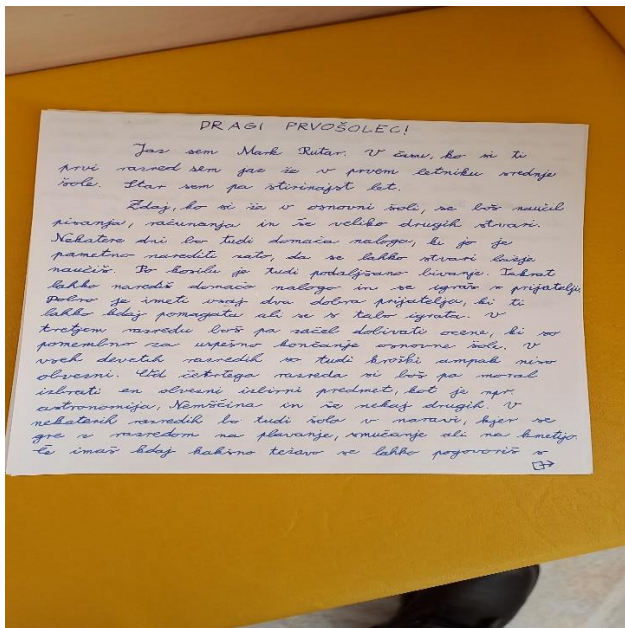 DRAGI PRVOŠOLEC!
Jaz sem Mark Rutar. V času, ko si ti
prvi razred sem jaz že v prvem letniku srednje
šole. Star sem pa štirinajst let.
Zdaj, ko si že v osnovni šoli, se boš naučil
pisanja, računanja in še veliko drugih stvari.
Nekatere dni bo tudi domača naloga, ki jo je
pametno narediti zato, da se lahko stvari lažje
naučiš. Po kosilu je tudi podaljšano bivanje. Takrat
lahko narediš domačo nalogo in se igraš s prijatelji.
Dobro je imeti vsaj dva dobra prijatelja, ki ti
lahko kdaj pomagata ali se s tabo igrata. V
tretjem razredu boš pa začel dobivati ocene, ki so
pomembne za uspešno končanje osnovne šole. V
vseh devetih razredih so tudi krožki ampak niso
obvezni. Od četrtega razreda si boš pa moral
izbrati en obvezni izbirni predmet, kot je npr.
astronomija, Nemščina in še nekaj drugih. V
nekaterih razredih bo tudi šola v naravi, kjer se
gre z razredom na plavanje, smučanje ali na kmetijo.
Če imaš kdaj kakšno težavo se lahko pogovoriš s